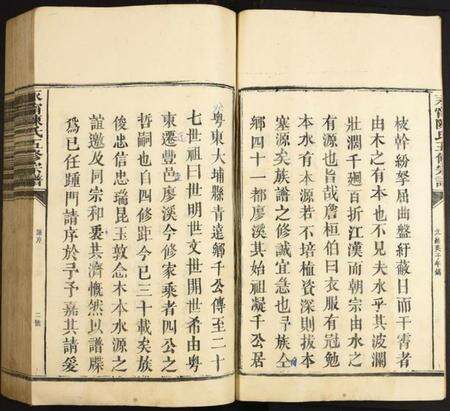 枝幹紛拏屈曲盤紆蔽日而干霄者
由木之有本也不見夫水乎其波瀾
壯濶千廻百折江漢而朝宗由水之
有源也旨哉詹桓伯曰衣服有冠冕
本水有木源若不培植資深則拔本
塞源矣族譜之修誠宜急也予族仝
鄉四十一都廖溪其始祖凝千公居
粤東大埔縣青遠鄉千公傳至二十
七世祖曰世明世文世開世希由粤
東遷豐邑廖溪今修家乘者四公之
哲嗣也自四修距今已三十載矣族
俊忠信忠端昆玉敦念木本水源之
誼邀及同宗和裘其濟慨然以譜牒
為已任踵門請序於予予嘉其請爰
陳氏五修宗譜
譜序
二